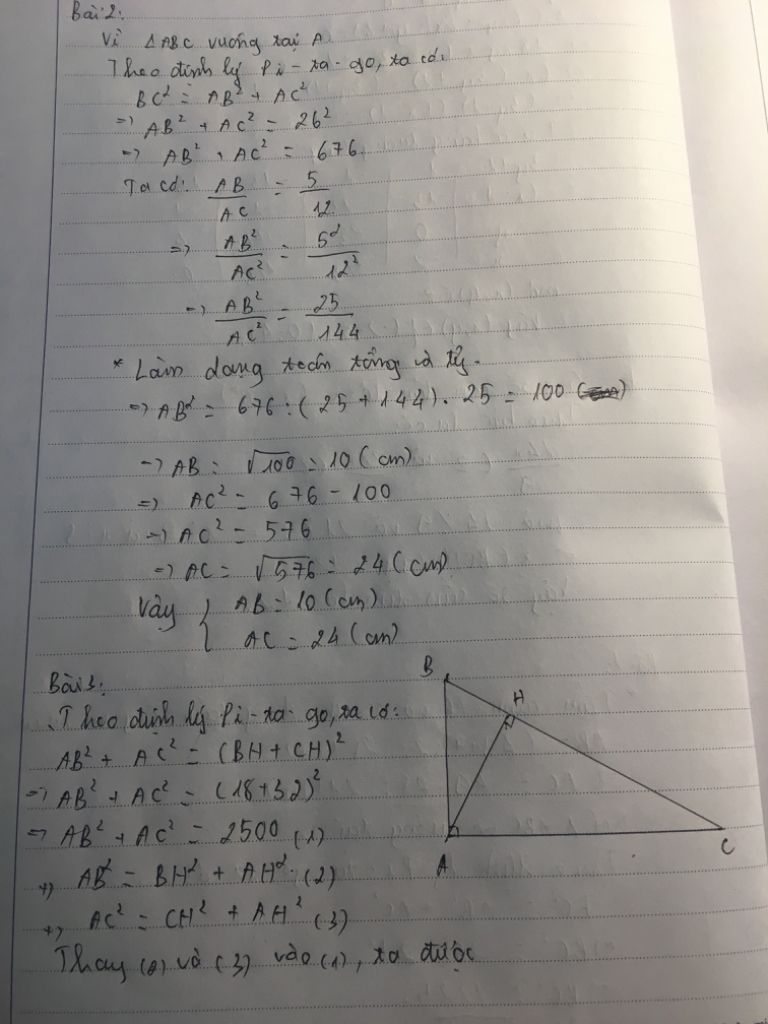 Bài 2:
Vì △ABC vuông tại A
Theo định lý Pi-ta-go, ta có:
BC² = AB² + AC²
=> AB² + AC² = 26²
=> AB² + AC² = 676
Ta có: AB/AC = 5/12
=> AB²/AC² = 5²/12²
=> AB²/AC² = 25/144
* Làm dạng toán tổng và tỷ.
=> AB² = 676 : (25 + 144) . 25 = 100
=> AB = √100 = 10 (cm)
=> AC² = 676 - 100
=> AC² = 576
=> AC = √576 = 24 (cm)
Vậy { AB = 10 (cm)
AC = 24 (cm)
Bài 3:
Theo định lý Pi-ta-go, ta có:
AB² + AC² = (BH + CH)²
=> AB² + AC² = (18+32)²
=> AB² + AC² = 2500 (1)
+) AB² = BH² + AH² (2)
+) AC² = CH² + AH² (3)
Thay (2) và (3) vào (1), ta được
B
H
A
C